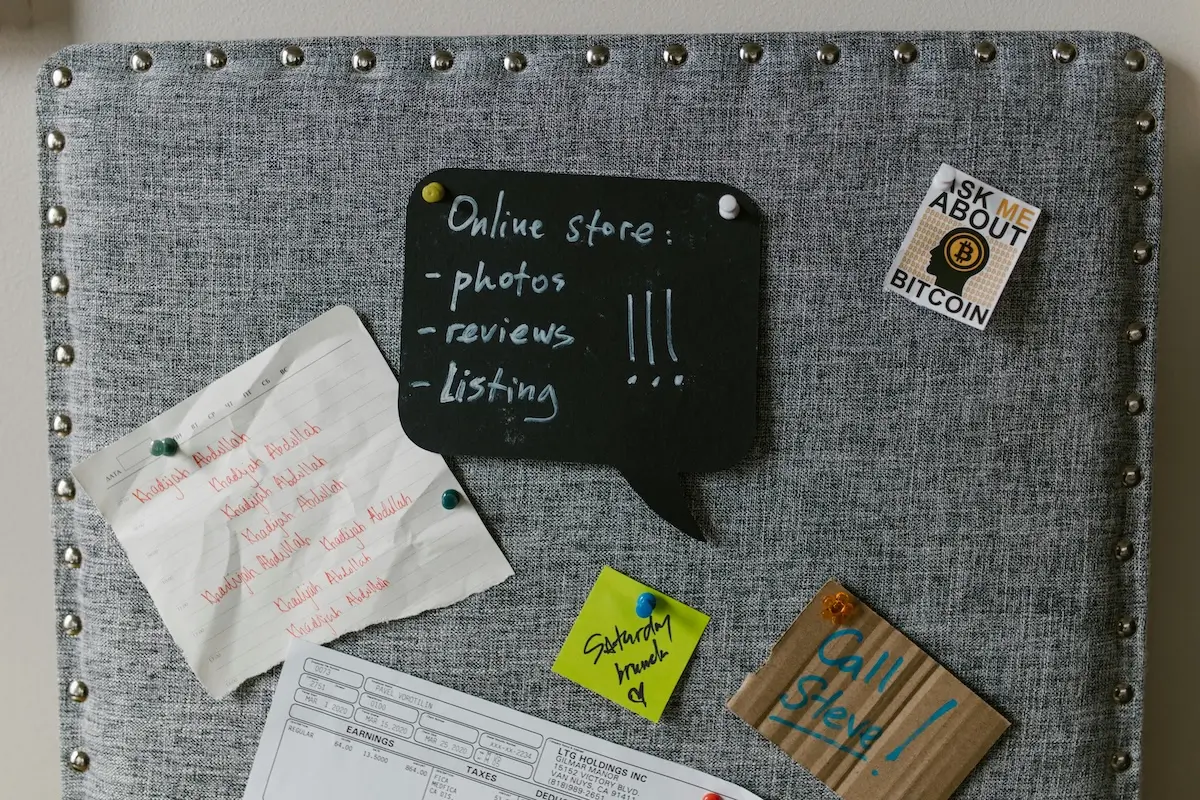 Online store:
- photos
- reviews
- Listing
!!!
ASK ME
ABOUT
BITCOIN
ДАТА ВТ СР ЧТ ПТ СБ ВС
Khadijah Abdullah
Khadijah Abdullah
Khadijah Abdullah
Khadijah Abdullah
Khadijah Abdullah
Khadijah Abdullah
Khadijah Abdullah
Khadijah Abdullah
Saturday
brunch
Call
Steve!
0073
PAVEL VOROTILIN
2751
0100
MAR 1 2020
MAR 15 2020
MAR 25 2020
XXX-XX-2234
EARNINGS
REGULAR 64.00 13.5000 864.00
TAXES
FICA
MEDFICA
CA DIS
LTG HOLDINGS INC
GILMAR MANOR
15152 VICTORY BLVD.
VAN NUYS, CA 91411
(818)989-2651